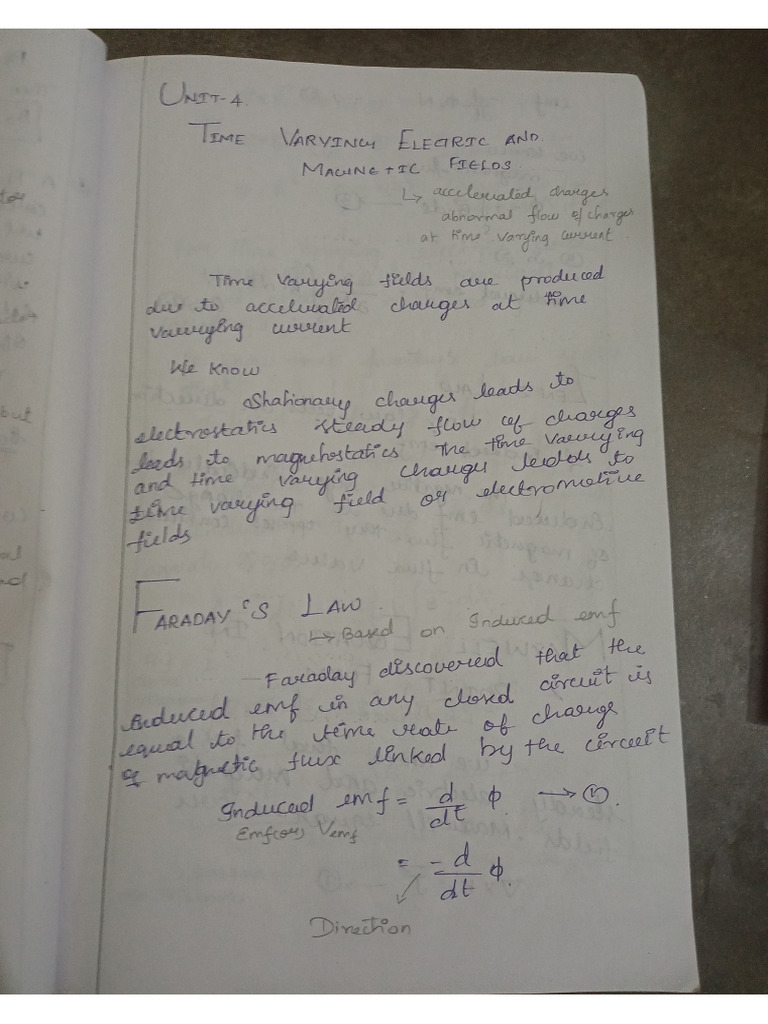 UNIT-4
TIME VARYING ELECTRIC AND
MAGNETIC FIELDS.
↳ accelerated charges
abnormal flow of charges
at time varying current.
Time varying fields are produced
due to accelerated charges at time
varrying current
We know
Stationary charges leads to
electrostatics steady flow of charges
leads to magnetostatics The time varrying
and time varying charges leads to
time varying field or electromotive
fields
FARADAY'S LAW.
↳ Based on Induced emf
Faraday discovered that the
Induced emf in any closed circuit is
equal to the time rate of change
of magnetic flux linked by the circuit
Induced emf = d/dt ϕ → ①.
Emf(or) Vemf
= -d/dt ϕ.
Direction